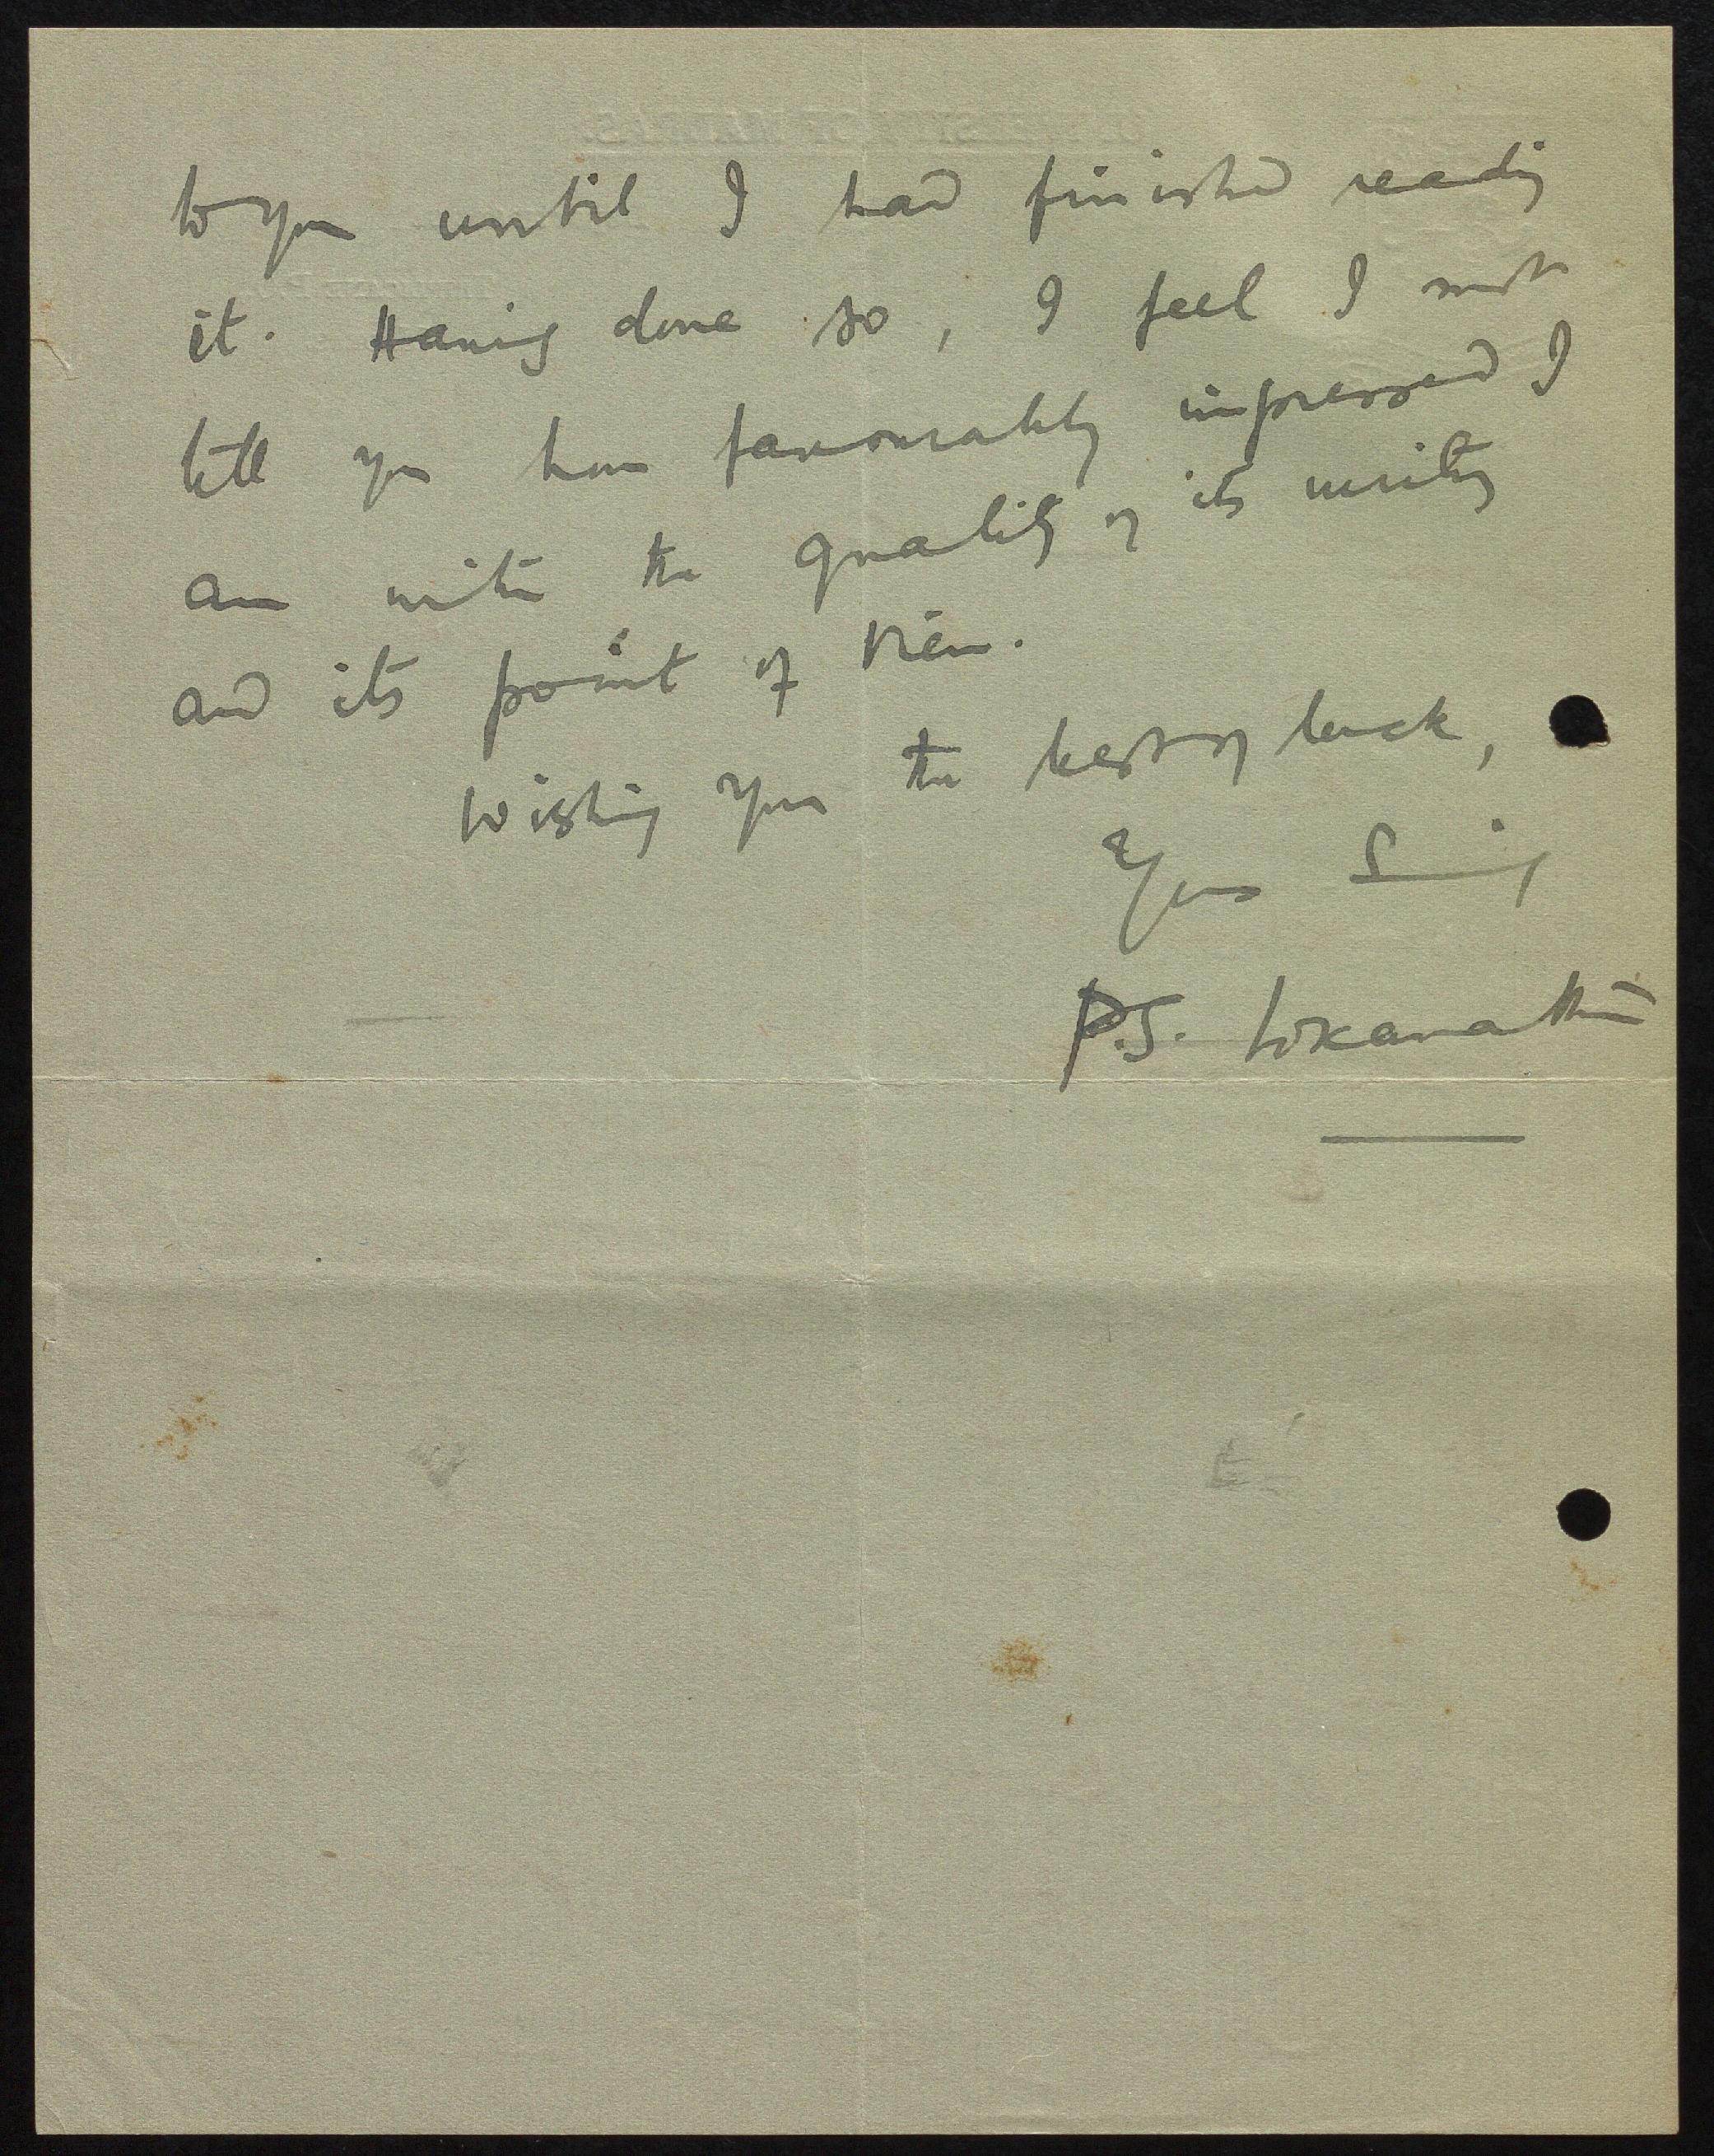 to you until I had finished reading
it. Having done so, I feel I must
tell you how favourably impressed I
am with the quality of its writing
and its point of view.
Wishing you the best of luck,
Yours Sincerely
P.S. Lokanathan